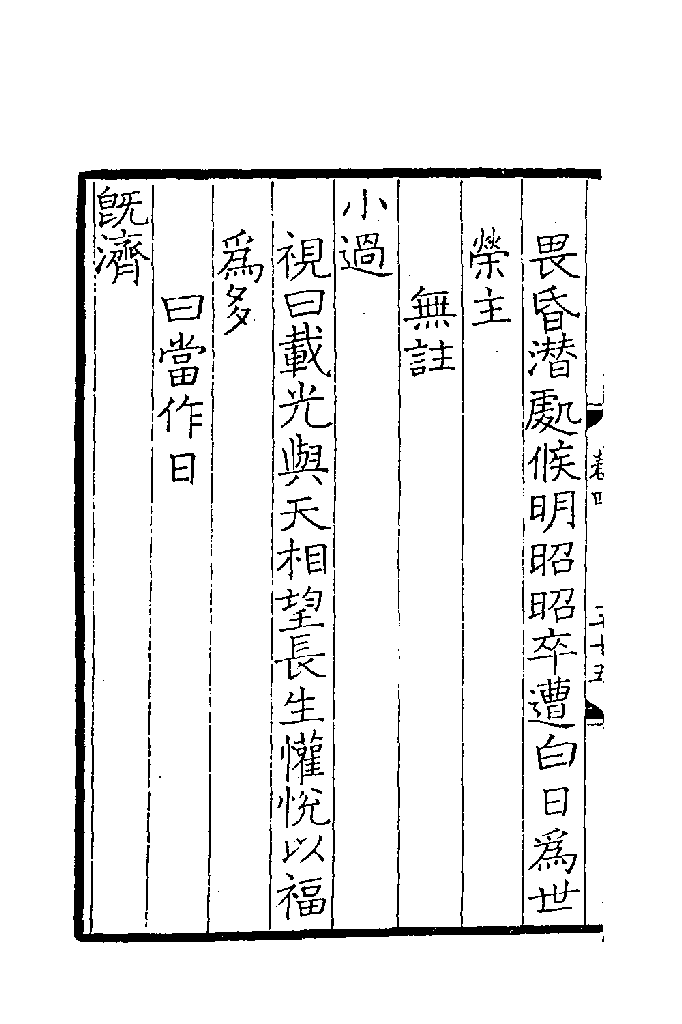 畏昏潜處候明昭昭卒遭白日爲世
榮主
無註
小過
視曰載光與天相望長生懽恱以福
爲多
曰當作日
旣濟
卷四